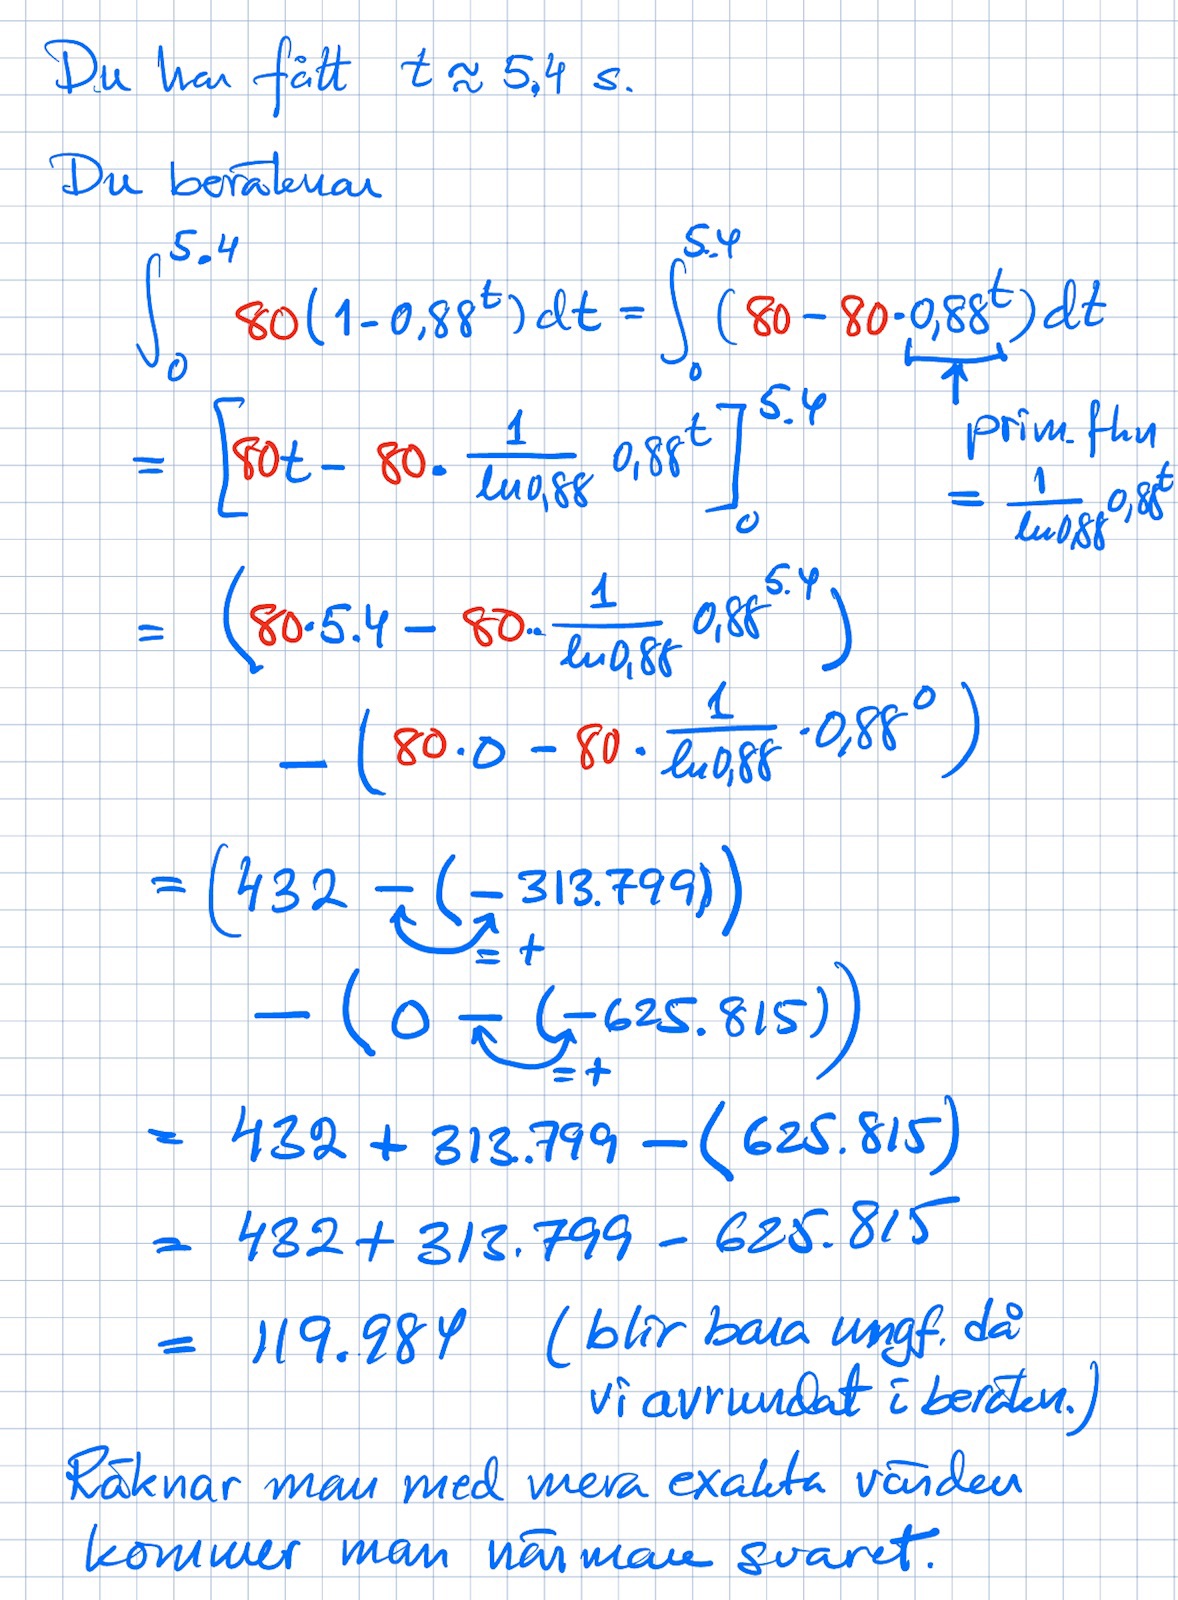 Du har fått t ≈ 5,4 s.
Du beräknar
∫₀^5.4 80(1-0,88^t)dt = ∫₀^5.4 (80 - 80·0,88^t)dt
= [80t - 80· 1/ln0,88 0,88^t]₀^5.4
prim. fkn
= 1/ln0,88 0,88^t
= (80·5.4 - 80·· 1/ln0,88 0,88^5.4)
- (80·0 - 80· 1/ln0,88 ·0,88^0)
= (432 - (-313.799))
= +
- (0 - (-625.815))
= +
= 432 + 313.799 - (625.815)
= 432 + 313.799 - 625.815
= 119.984 (blir bara ungf. då
vi avrundat i beräkn.)
Räknar man med mera exakta värden
kommer man närmare svaret.